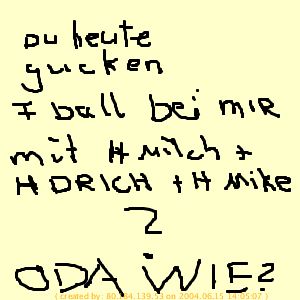 DU heute
gucken
F ball bei MIR
mit H Milch +
H DRICH + H Mike
?
ODA WIE?
( created by: on 2004.06.15 14:05:07 )